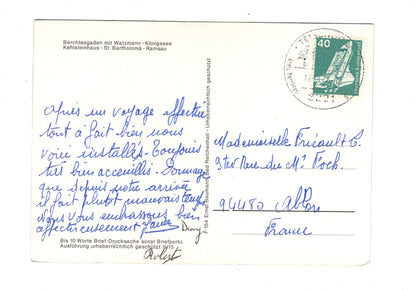 Berchtesgaden mit Watzmann - Königssee
Kehlsteinhaus - St. Bartholomä - Ramsau
40
8221
Après un voyage effectué
tout à fait bien nous
voici installés. Toujours
très bien acceuillis. Dommage
que depuis notre arrivée
il fait plutôt mauvais temps
Nous vous embrassons bien
affectueusement
Robert
Bis 10 Worte Brief-Drucksache sonst Briefporto
Ausführung urheberrechtlich geschützt
Ernst Baumann, Bad Reichenhall - Urheberrechtlich geschützt
Mademoiselle
Rue du Mal Foch
94480 Ablon
France